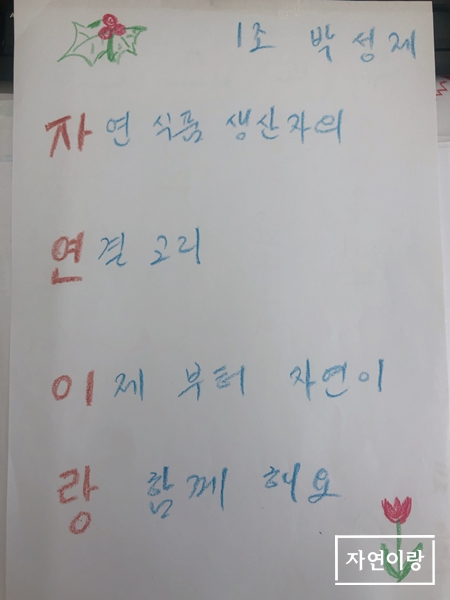 1조 박성제
자연 식품 생산자의
연결 고리
이제 부터 자연이
랑 함께 해요
자연이랑